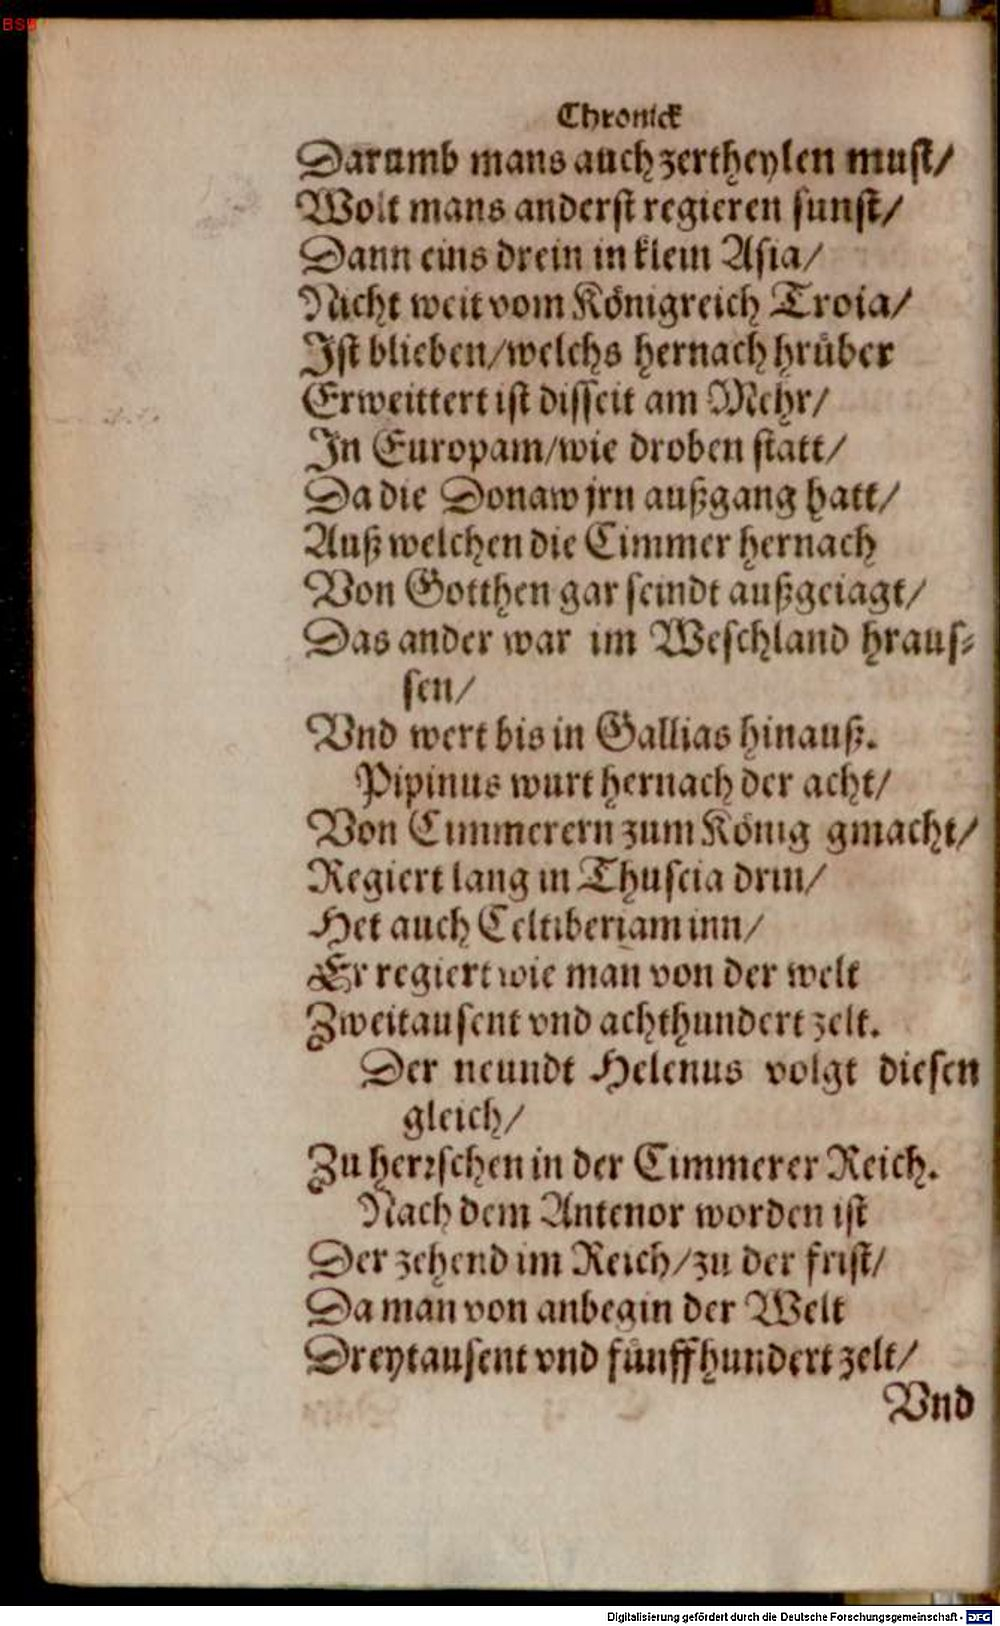 BSB
Chronick
Darumb mans auch zertheylen must/
Wolt mans anderst regieren sunst/
Dann eins drein in klein Asia/
Nicht weit vom Königreich Troia/
Ist blieben/welchs hernach hrüber
Erweittert ist disseit am Mehr/
In Europam/wie droben statt/
Da die Donaw jrn außgang hatt/
Auß welchen die Cimmer hernach
Von Gotthen gar seindt außgeiagt/
Das ander war im Weschland hraus⸗
sen/
Vnd wert bis in Gallias hinauß.
Pipinus wurt hernach der acht/
Von Cimmerern zum König gmacht/
Regiert lang in Thuscia drin/
Het auch Celtiberiam inn/
Er regiert wie man von der welt
Zweitausent vnd achthundert zelt.
Der neundt Helenus volgt diesen
gleich/
Zu herrschen in der Cimmerer Reich.
Nach dem Antenor worden ist
Der zehend im Reich/zu der frist/
Da man von anbegin der Welt
Dreytausent vnd fünffhundert zelt/
Vnd
Digitalisierung gefördert durch die Deutsche Forschungsgemeinschaft - DFG